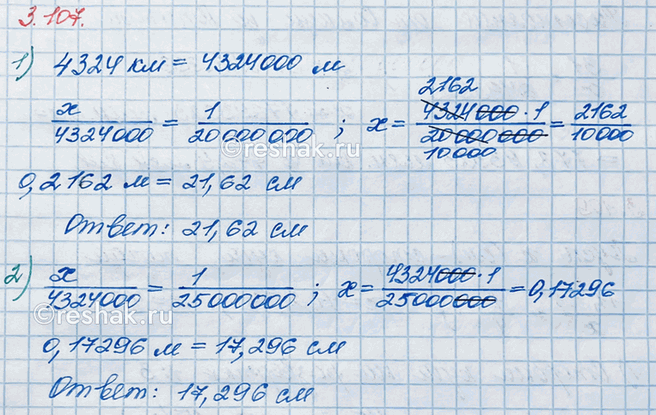 3.107.
1) 4324 км = 4324000 м
x/4324000 = 1/20000000 ; x = 2162 4324000·1/20000000 10000 = 2162/10000
0,2162 м = 21,62 см
Ответ: 21,62 см
2) x/4324000 = 1/25000000 ; x = 4324000·1/25000000 = 0,17296
0,17296 м = 17,296 см
Ответ: 17,296 см
©reshak.ru
©reshak.ru